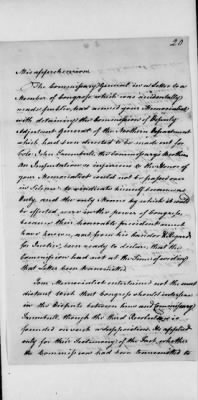 20
Misapprehension
The Commissary General in a Letter to a
Member of Congress which was incidentally
made public, had accused your Memorialist
with detaining the Commission of Deputy
Adjutant General of the Northern Department
which had been directed to be made out for
Colo. John Trumbull the Commissary's Brother
An Imputation so injurious to the Honor of
your Memorialist could not be passed over
in Silence to vindicate himself became a
Duty, and the only Means by which it could
be effected, were in the power of Congress,
because their honorable president must
have known, and from his Candor & Regard
for Justice, been ready to declare, that the
Commission had not at the Time of writing
that Letter been transmitted
Your Memorialist entertained not the most
distant Wish that Congress should interfere
in the Dispute between him and Commissary
Trumbull though the third Resolution is
founded on such a supposition. He applied
only for their Testimony of the Fact, whether
the Commission had been transmitted to